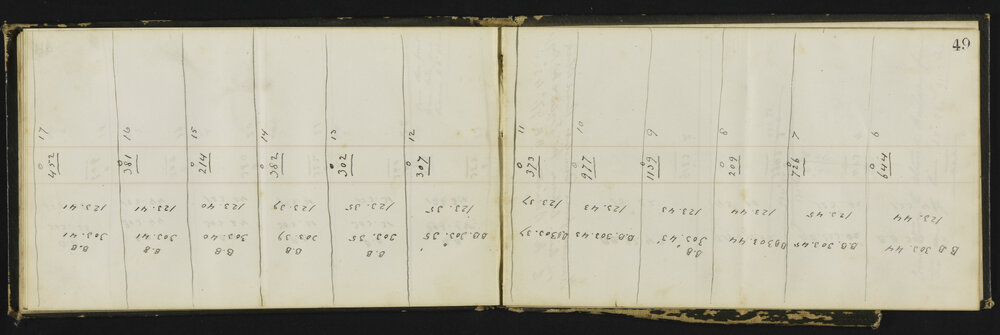 49
17
0
452
123.41
B.B 303.41
16
0
381
123.41
B.B 303.41
15
0
214
123.40
B.B 303.40
14
0
382
123.39
B.B 303.39
13
0
302
123.35
B.B 303.35
12
0
307
123.35
B.B. 303.35
11
0
373
123.37
BB 303.37
10
0
977
123.43
B.B. 303.43
9
0
1139
123.43
B.B 303.43
8
0
209
123.44
BB 303.44
7
0
726
123.45
B.B. 303.45
6
0
644
123.44
B.B 303.44